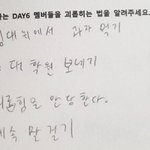 는 DAY6 멤버들을 괴롭히는 법을 알려주세요.
침대 위에서 과자 먹기
대학원 보내기
괴롭힘을 안 당한다.
계속 말 걸기